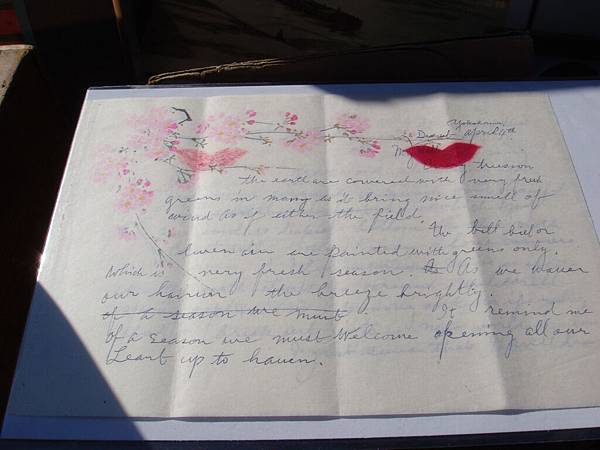 Yokohama,
Dearest April 4th
My
the earth are covered with very fresh
greens in many is it bring nice smell of
wind as if either the field.
the hill
are painted with greens only.
Which is very fresh season. As we waver
our the breeze brightly.
of a season we must It remind me
of a season we must Welcome opening all our
up to haven.